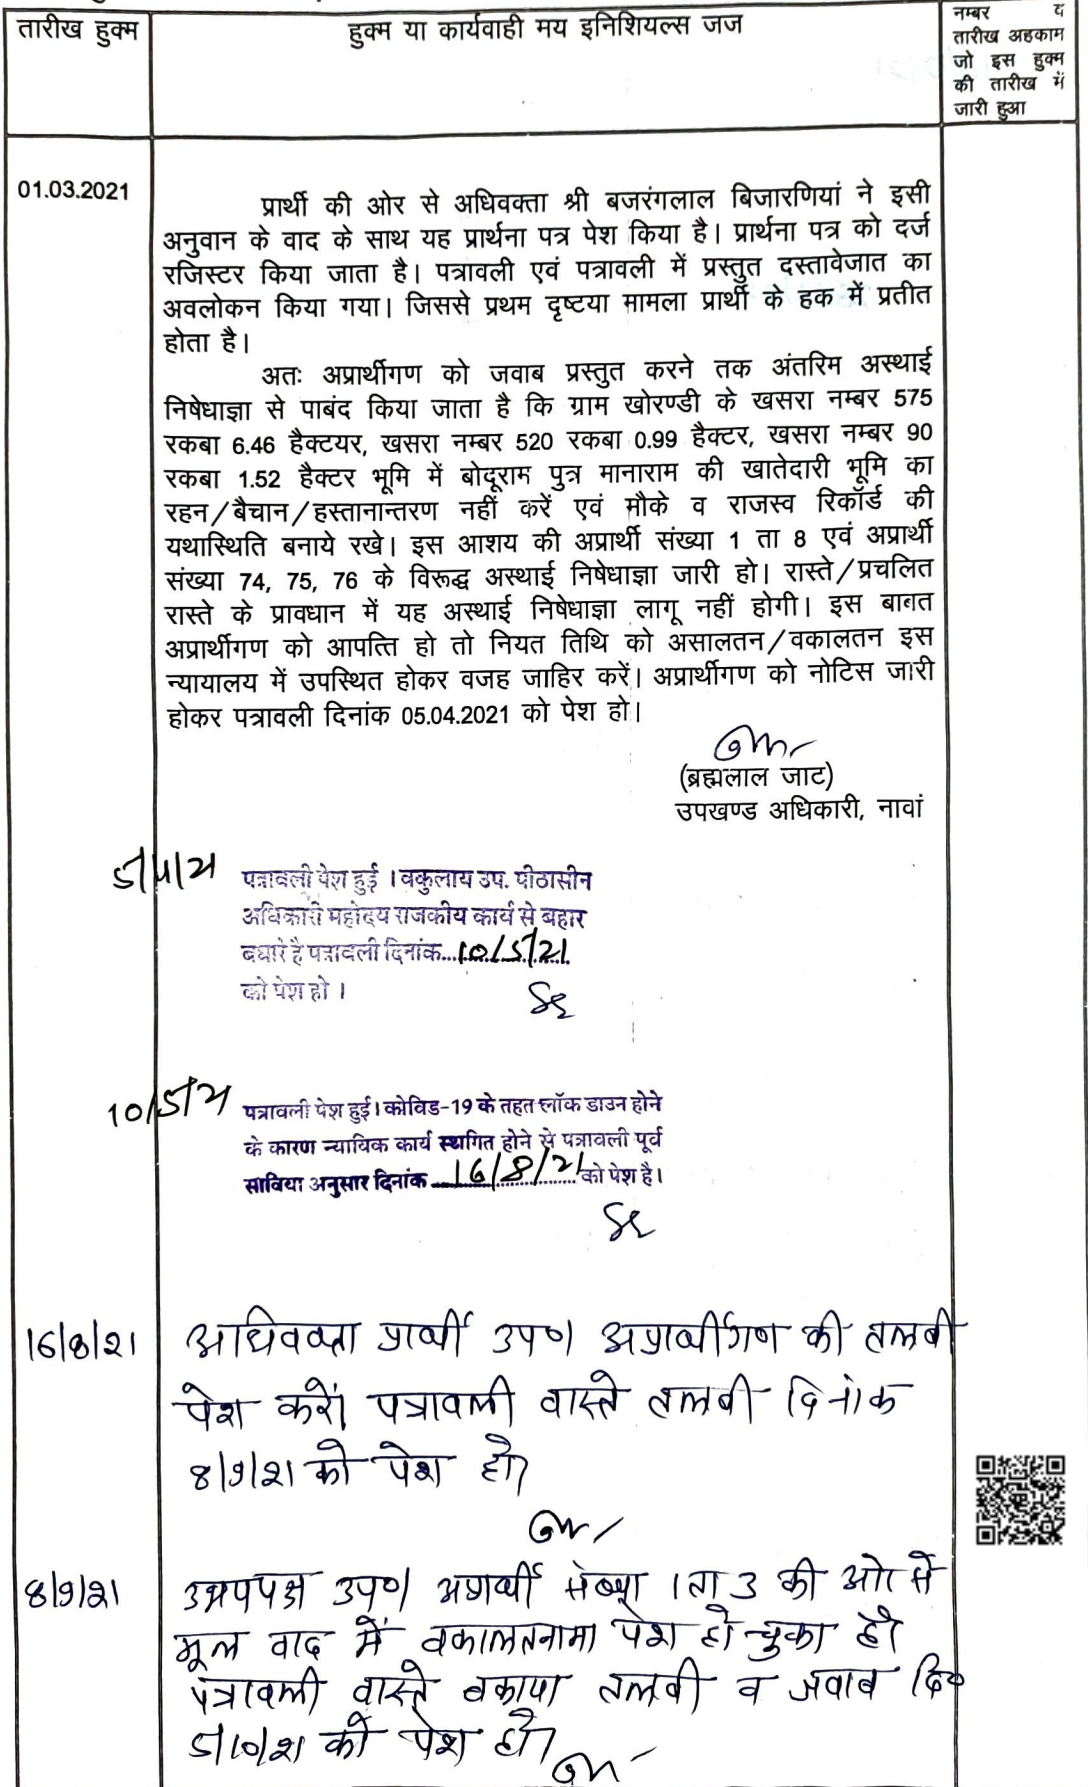 तारीख हुक्म
हुक्म या कार्यवाही मय इनिशियल्स जज
नम्बर व
तारीख अहकाम
जो इस हुक्म
की तारीख में
जारी हुआ
01.03.2021
प्रार्थी की ओर से अधिवक्ता श्री बजरंगलाल बिजारणियां ने इसी
अनुवान के वाद के साथ यह प्रार्थना पत्र पेश किया है। प्रार्थना पत्र को दर्ज
रजिस्टर किया जाता है। पत्रावली एवं पत्रावली में प्रस्तुत दस्तावेजात का
अवलोकन किया गया। जिससे प्रथम दृष्टया मामला प्रार्थी के हक में प्रतीत
होता है।
अतः अप्रार्थीगण को जवाब प्रस्तुत करने तक अंतरिम अस्थाई
निषेधाज्ञा से पाबंद किया जाता है कि ग्राम खोरण्डी के खसरा नम्बर 575
रकबा 6.46 हैक्टयर, खसरा नम्बर 520 रकबा 0.99 हैक्टर, खसरा नम्बर 90
रकबा 1.52 हैक्टर भूमि में बोदूराम पुत्र मानाराम की खातेदारी भूमि का
रहन/बैचान/हस्तानान्तरण नहीं करें एवं मौके व राजस्व रिकॉर्ड की
यथास्थिति बनाये रखे। इस आशय की अप्रार्थी संख्या 1 ता 8 एवं अप्रार्थी
संख्या 74, 75, 76 के विरूद्ध अस्थाई निषेधाज्ञा जारी हो। रास्ते/प्रचलित
रास्ते के प्रावधान में यह अस्थाई निषेधाज्ञा लागू नहीं होगी। इस बाबत
अप्रार्थीगण को आपत्ति हो तो नियत तिथि को असालतन/वकालतन इस
न्यायालय में उपस्थित होकर वजह जाहिर करें। अप्रार्थीगण को नोटिस जारी
होकर पत्रावली दिनांक 05.04.2021 को पेश हो।
(ब्रह्मलाल जाट)
उपखण्ड अधिकारी, नावां
5/4/21
पत्रावली पेश हुई । वकुलाय उप. पीठासीन
अधिकारी महोदय राजकीय कार्य से बहार
बधारे है पत्रावली दिनांक...10/5/21
को पेश हो ।
10/5/21
पत्रावली पेश हुई। कोविड-19 के तहत लॉक डाउन होने
के कारण न्यायिक कार्य स्थगित होने से पत्रावली पूर्व
साविया अनुसार दिनांक ...16/8/21... को पेश है।
16/8/21
अधिवक्ता प्रार्थी उप० अप्रार्थीगण की तलबी
पेश करें। पत्रावली वास्ते तलबी दिनांक
8/9/21 को पेश हो।
8/9/21
उभयपक्ष उप० अप्रार्थी संख्या 1 ता 3 की ओर से
मूल वाद में वकालतनामा पेश हो चुका है।
पत्रावली वास्ते बकाया तलबी व जवाब दि०
5/10/21 को पेश हो।